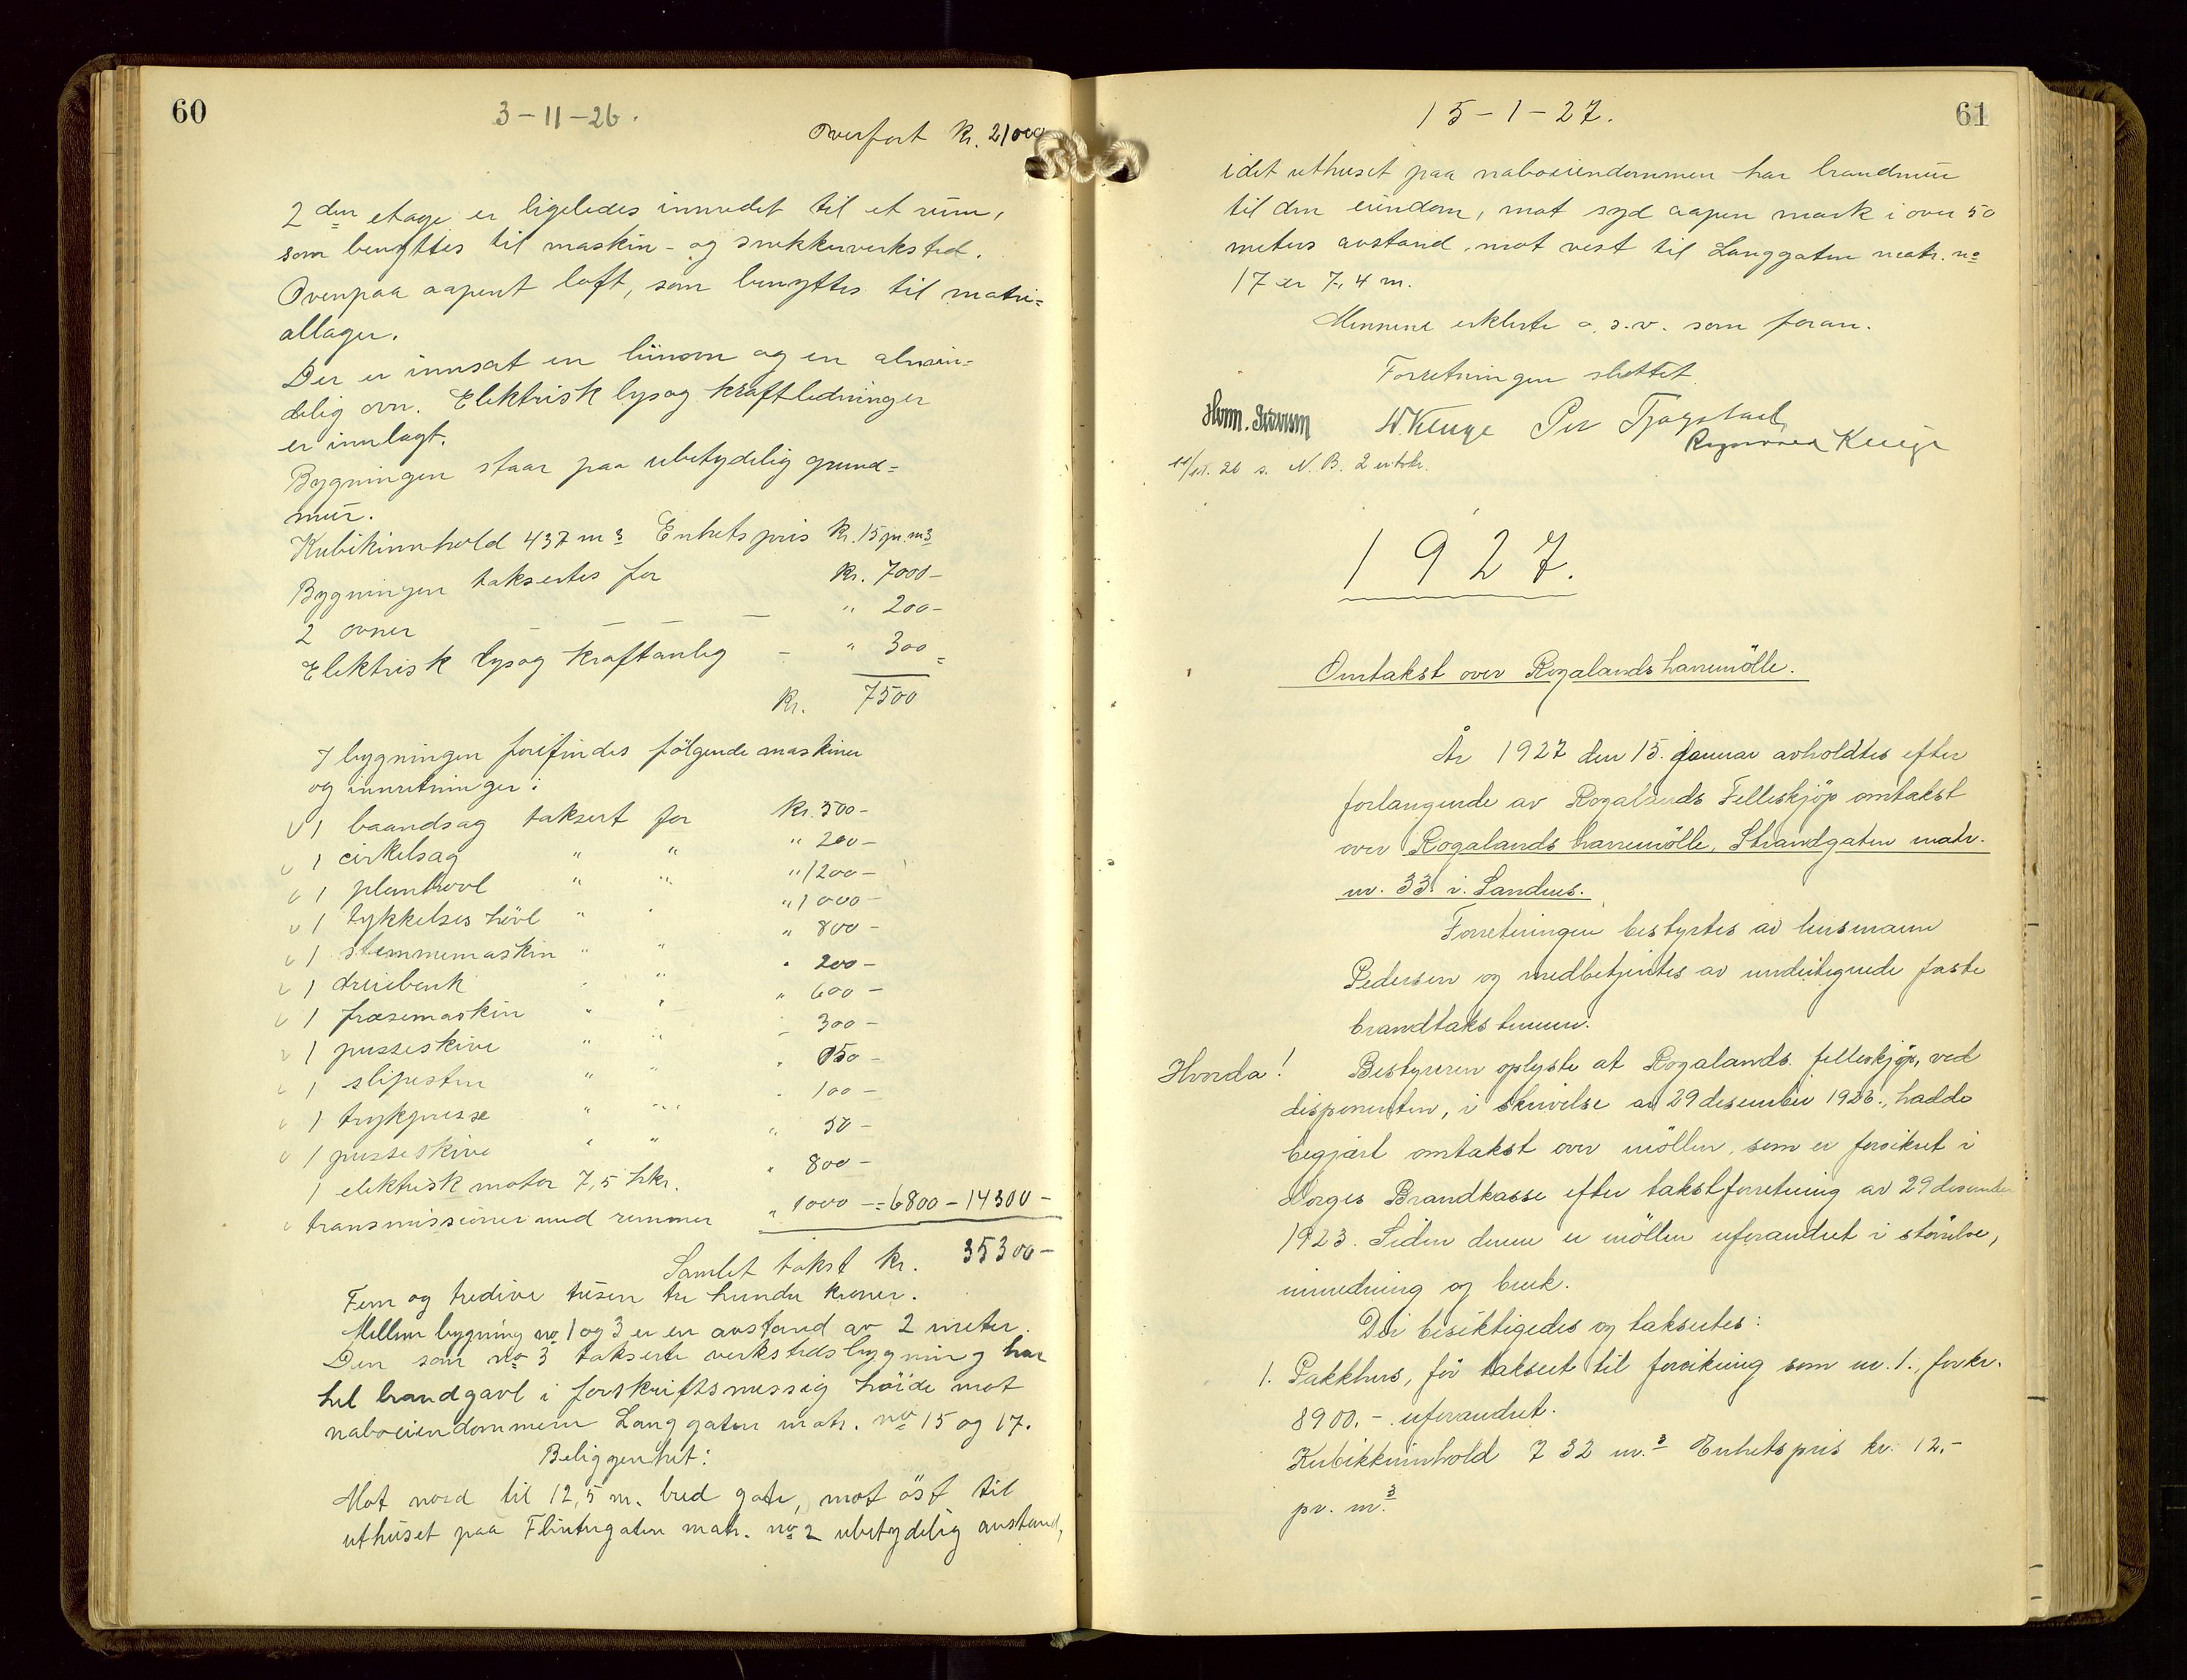 60
3-11-26.
Overført kr. 21000
2den etage er ligeledes innredet til et rum,
som benyttes til maskin- og snekkerverksted.
Ovenpaa aapent loft, som benyttes til matri=
allager.
Der er innsat en limovn og en almin=
delig ovn. Elektrisk lys og kraftledninger
er innlagt.
Bygningen staar paa ubetydelig grund=
mur.
Kubikinnhold 437 m3 Enhetspris kr. 15 pr. m3
Bygningen taksertes for kr. 7000-
2 ovner — — — " 200-
Elektrisk lys og kraftanleg - " 300=
kr. 7500
I bygningen forefindes følgende maskiner
og innretninger:
1 baandsag taksert for kr. 500-
1 cirkelsag " " " 200-
1 planhøvl " " " 1200-
1 tykkelseshövl " " " 1000-
1 stemmemaskin " " " 800-
1 dreiebenk " " " 200-
1 fræsemaskin " " " 600-
1 pusseskive " " " 300-
1 slipesten " " " 050-
1 trykpresse " " " 100-
1 pusseskive " " " 50-
1 elektrisk motor 7,5 hkr. " 800-
transmissioner med remmer " 1000-=6800-14300-
Samlet takst kr. 35300-
Fem og tredive tusen tre hundre kroner.
Mellem bygning no 1 og 3 er en avstand av 2 meter.
Den som no 3 takserte verkstedsbygning har
hel brandgavl i forskriftsmessig höide mot
naboeiendommene Langgaten matr. no 15 og 17.
Beliggenhet:
Mot nord til 12,5 m. bred gate, mot öst til
uthuset paa Flintergaten matr. no 2 ubetydelig avstand,
61
15-1-27.
idet uthuset paa naboeiendommen har brandmur
til den eiendom, mot syd aapen mark i over 50
meters avstand, mot vest til Langgaten matr. no
17 er 7,4 m.
Mennene erklerte o.s.v. som foran.
Forretningen sluttet.
W. Kluge Per Tjagstad
Kluge
11/11. 26 s. N.B. 2 entbr.
1927.
Omtakst over Rogalands havremölle.
År 1927 den 15. januar avholdtes efter
forlangende av Rogalands Felleskjöp omtakst
over Rogalands havremölle, Strandgaten matr.
nr. 33 i Sandnes.
Forretningen bestyrtes av lensmann
Pedersen og medbetjentes av undertegnede faste
brandtakstmenn.
Hvorda! Bestyreren oplyste at Rogalands felleskjöp, ved
disponenten, i skrivelse av 29 desember 1926, hadde
begjært omtakst over möllen, som er forsikret i
Norges Brandkasse efter takstforretning av 29 desember
1923. Siden denne er möllen uforandret i störrelse,
innredning og bruk.
Der besiktigedes og taksertes:
1. Pakkhus, för taksert til forsikring som nr. 1., for kr.
8900.- uforandret.
Kubikkinnhold 732 m.3 Enhetspris kr. 12,-
pr. m.3